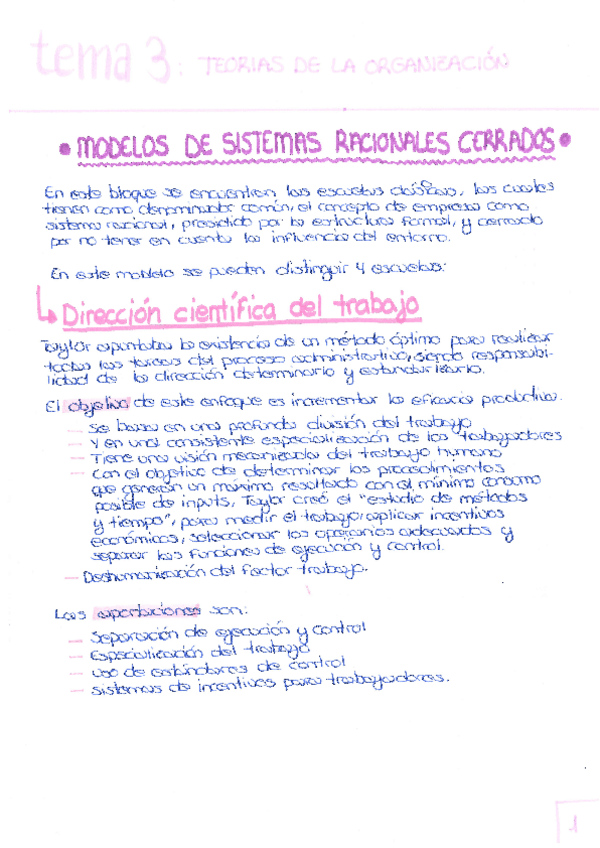 tema 3: TEORIAS DE LA ORGANIZACIÓN
• MODELOS DE SISTEMAS RACIONALES CERRADOS •
En este bloque se encuentran las escuelas clásicas, las cuales
tienen como denominador común, el concepto de empresa como
sistema racional, presidido por la estructura formal, y cerrado
por no tener en cuenta la influencia del entorno.
En este modelo se pueden distinguir 4 escuelas:
Dirección científica del trabajo
Taylor la existencia de un método óptimo para realizar
todas las tareas del proceso administrativo, siendo responsabi-
lidad de la dirección determinarlo y estandarizarlo.
El objetivo de este enfoque es incrementar la eficacia productiva.
— Se basa en una profunda división del trabajo
— Y en una consistente especialización de los trabajadores
— Tiene una visión mecanizada del trabajo humano
— Con el objetivo de determinar los procedimientos
que generan un máximo resultado con el mínimo consumo
posible de inputs, Taylor creó el "estudio de métodos
y tiempo", para medir el trabajo, aplicar incentivos
económicos, seleccionar los operarios adecuados y
separar las funciones de ejecución y control.
— Deshumanización del factor trabajo.
Las aportaciones son:
— Separación de ejecución y control
— Especialización del trabajo
— uso de estándares de control
— sistemas de incentivos para trabajadores.
1